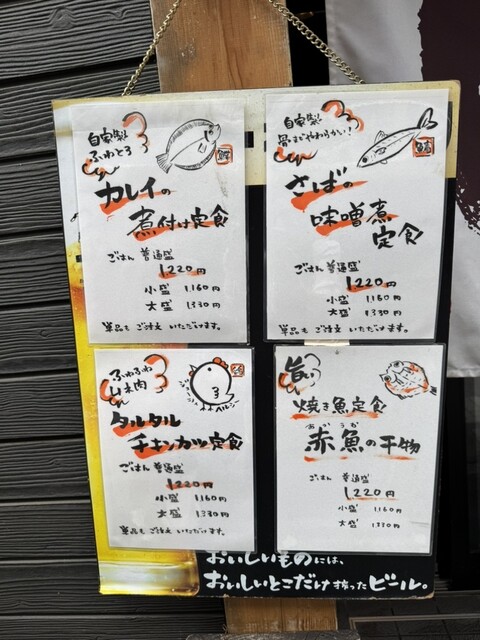 自家製
ふわとろ
カレイの
煮付け定食
ごはん 普通盛
1220円
小盛 1160円
大盛 1330円
単品もご注文いただけます。
自家製
骨までやわらかい!
さばの
味噌煮
定食
ごはん 普通盛
1220円
小盛 1160円
大盛 1330円
単品もご注文いただけます。
ふわふわ
ムネ肉
ヘルシー
タルタル
チキンカツ定食
ごはん 普通盛
1220円
小盛 1160円
大盛 1330円
単品もご注文いただけます。
旨い
焼き魚定食
あかうお
赤魚の干物
ごはん 普通盛
1220円
小盛 1160円
大盛 1330円
おいしいものには、
おいしいとこだけ搾ったビール。